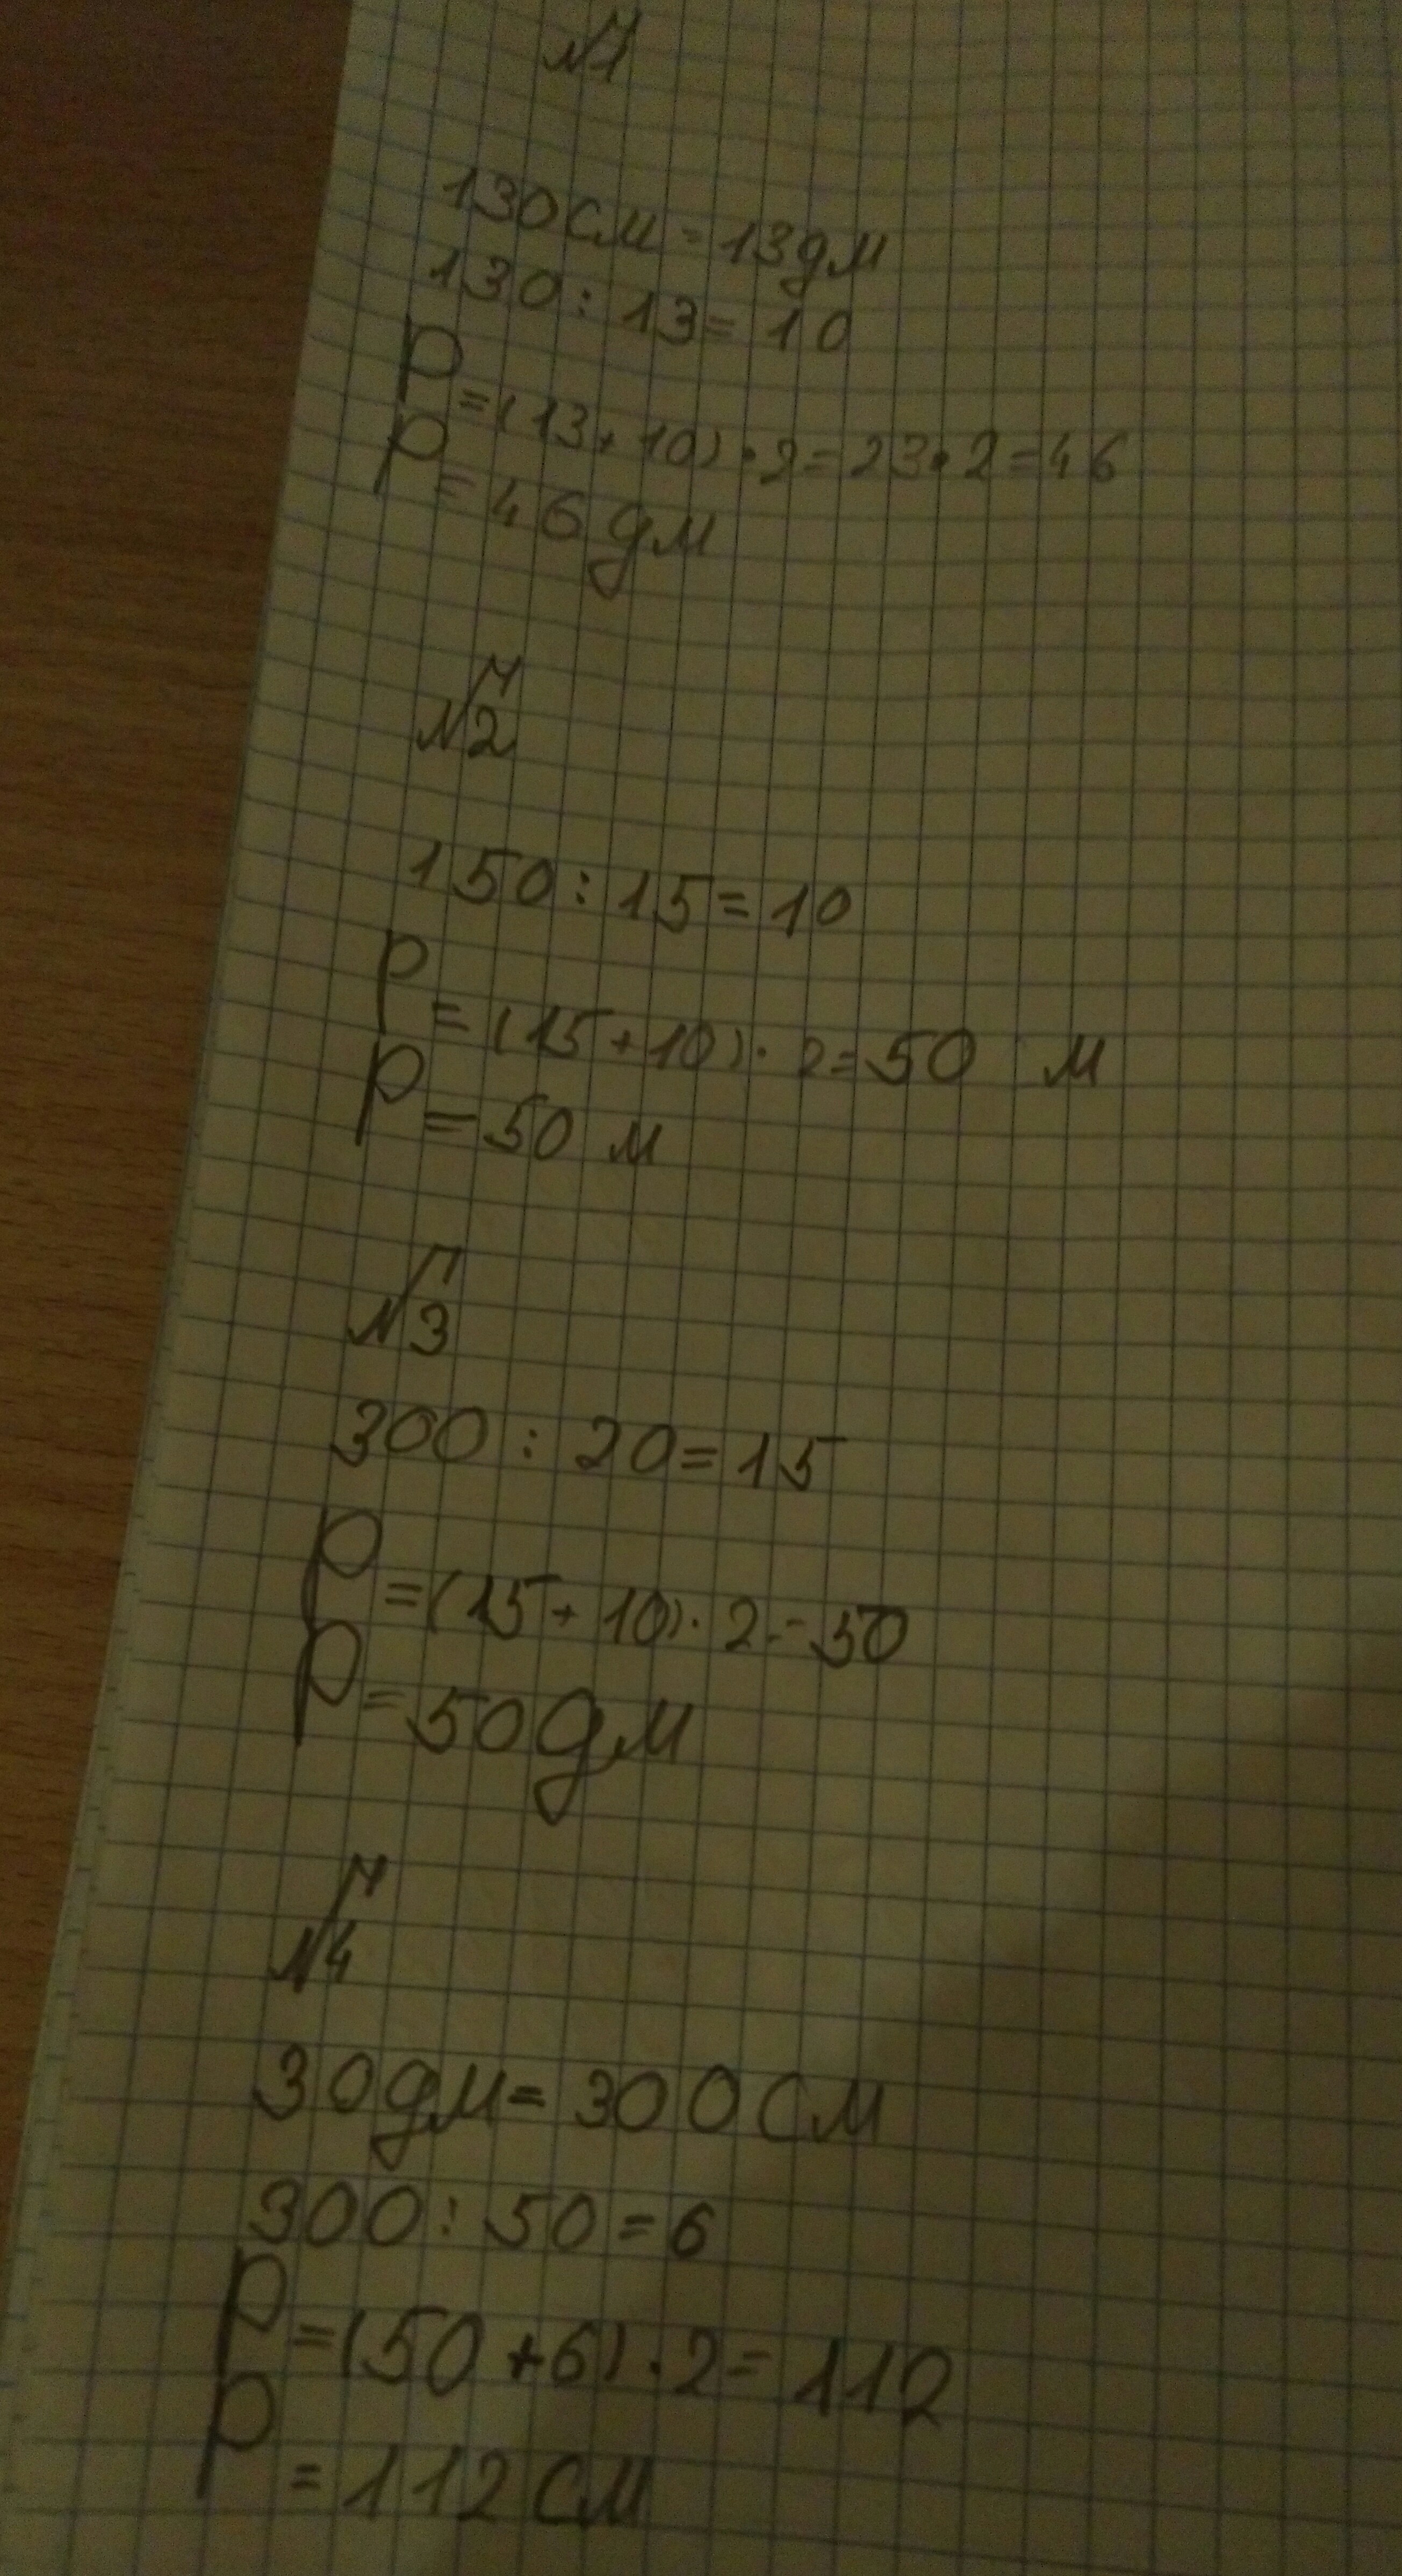 №1
130 см = 13 дм
130 : 13 = 10
P = (13 + 10) · 2 = 23 · 2 = 46
P = 46 дм
№2
150 : 15 = 10
P = (15 + 10) · 2 = 50 м
P = 50 м
№3
300 : 20 = 15
P = (15 + 10) · 2 = 50
P = 50 дм
№4
30 дм = 300 см
300 : 50 = 6
P = (50 + 6) · 2 = 112
P = 112 см